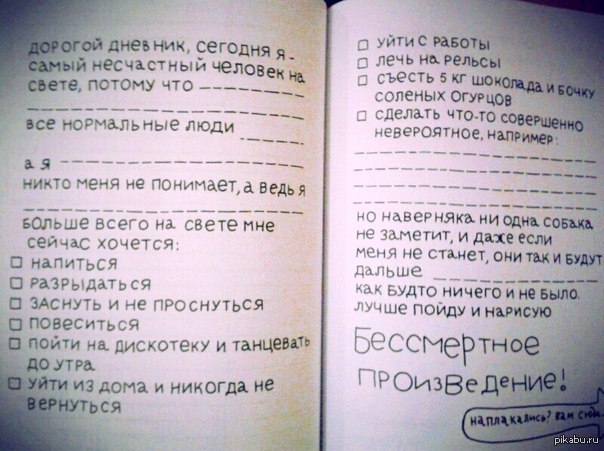 ДОРОГОЙ ДНЕВНИК, СЕГОДНЯ Я -
САМЫЙ НЕСЧАСТНЫЙ ЧЕЛОВЕК НА
СВЕТЕ, ПОТОМУ ЧТО
ВСЕ НОРМАЛЬНЫЕ ЛЮДИ
А Я
НИКТО МЕНЯ НЕ ПОНИМАЕТ, А ВЕДЬ Я
БОЛЬШЕ ВСЕГО НА СВЕТЕ МНЕ
СЕЙЧАС ХОЧЕТСЯ:
НАПИТЬСЯ
РАЗРЫДАТЬСЯ
ЗАСНУТЬ И НЕ ПРОСНУТЬСЯ
ПОВЕСИТЬСЯ
ПОЙТИ НА ДИСКОТЕКУ И ТАНЦЕВАТЬ
ДО УТРА
УЙТИ ИЗ ДОМА И НИКОГДА НЕ
ВЕРНУТЬСЯ
УЙТИ С РАБОТЫ
ЛЕЧЬ НА РЕЛЬСЫ
СЪЕСТЬ 5 КГ ШОКОЛАДА И БОЧКУ
СОЛЕНЫХ ОГУРЦОВ
СДЕЛАТЬ ЧТО-ТО СОВЕРШЕННО
НЕВЕРОЯТНОЕ, НАПРИМЕР:
НО НАВЕРНЯКА НИ ОДНА СОБАКА
НЕ ЗАМЕТИТ, И ДАЖЕ ЕСЛИ
МЕНЯ НЕ СТАНЕТ, ОНИ ТАК И БУДУТ
ДАЛЬШЕ
КАК БУДТО НИЧЕГО И НЕ БЫЛО.
ЛУЧШЕ ПОЙДУ И НАРИСУЮ
БЕССМЕРТНОЕ
ПРОИЗВЕДЕНИЕ!
НАПЛАКАЛИСЬ? ВАМ СЮДА
pikabu.ru